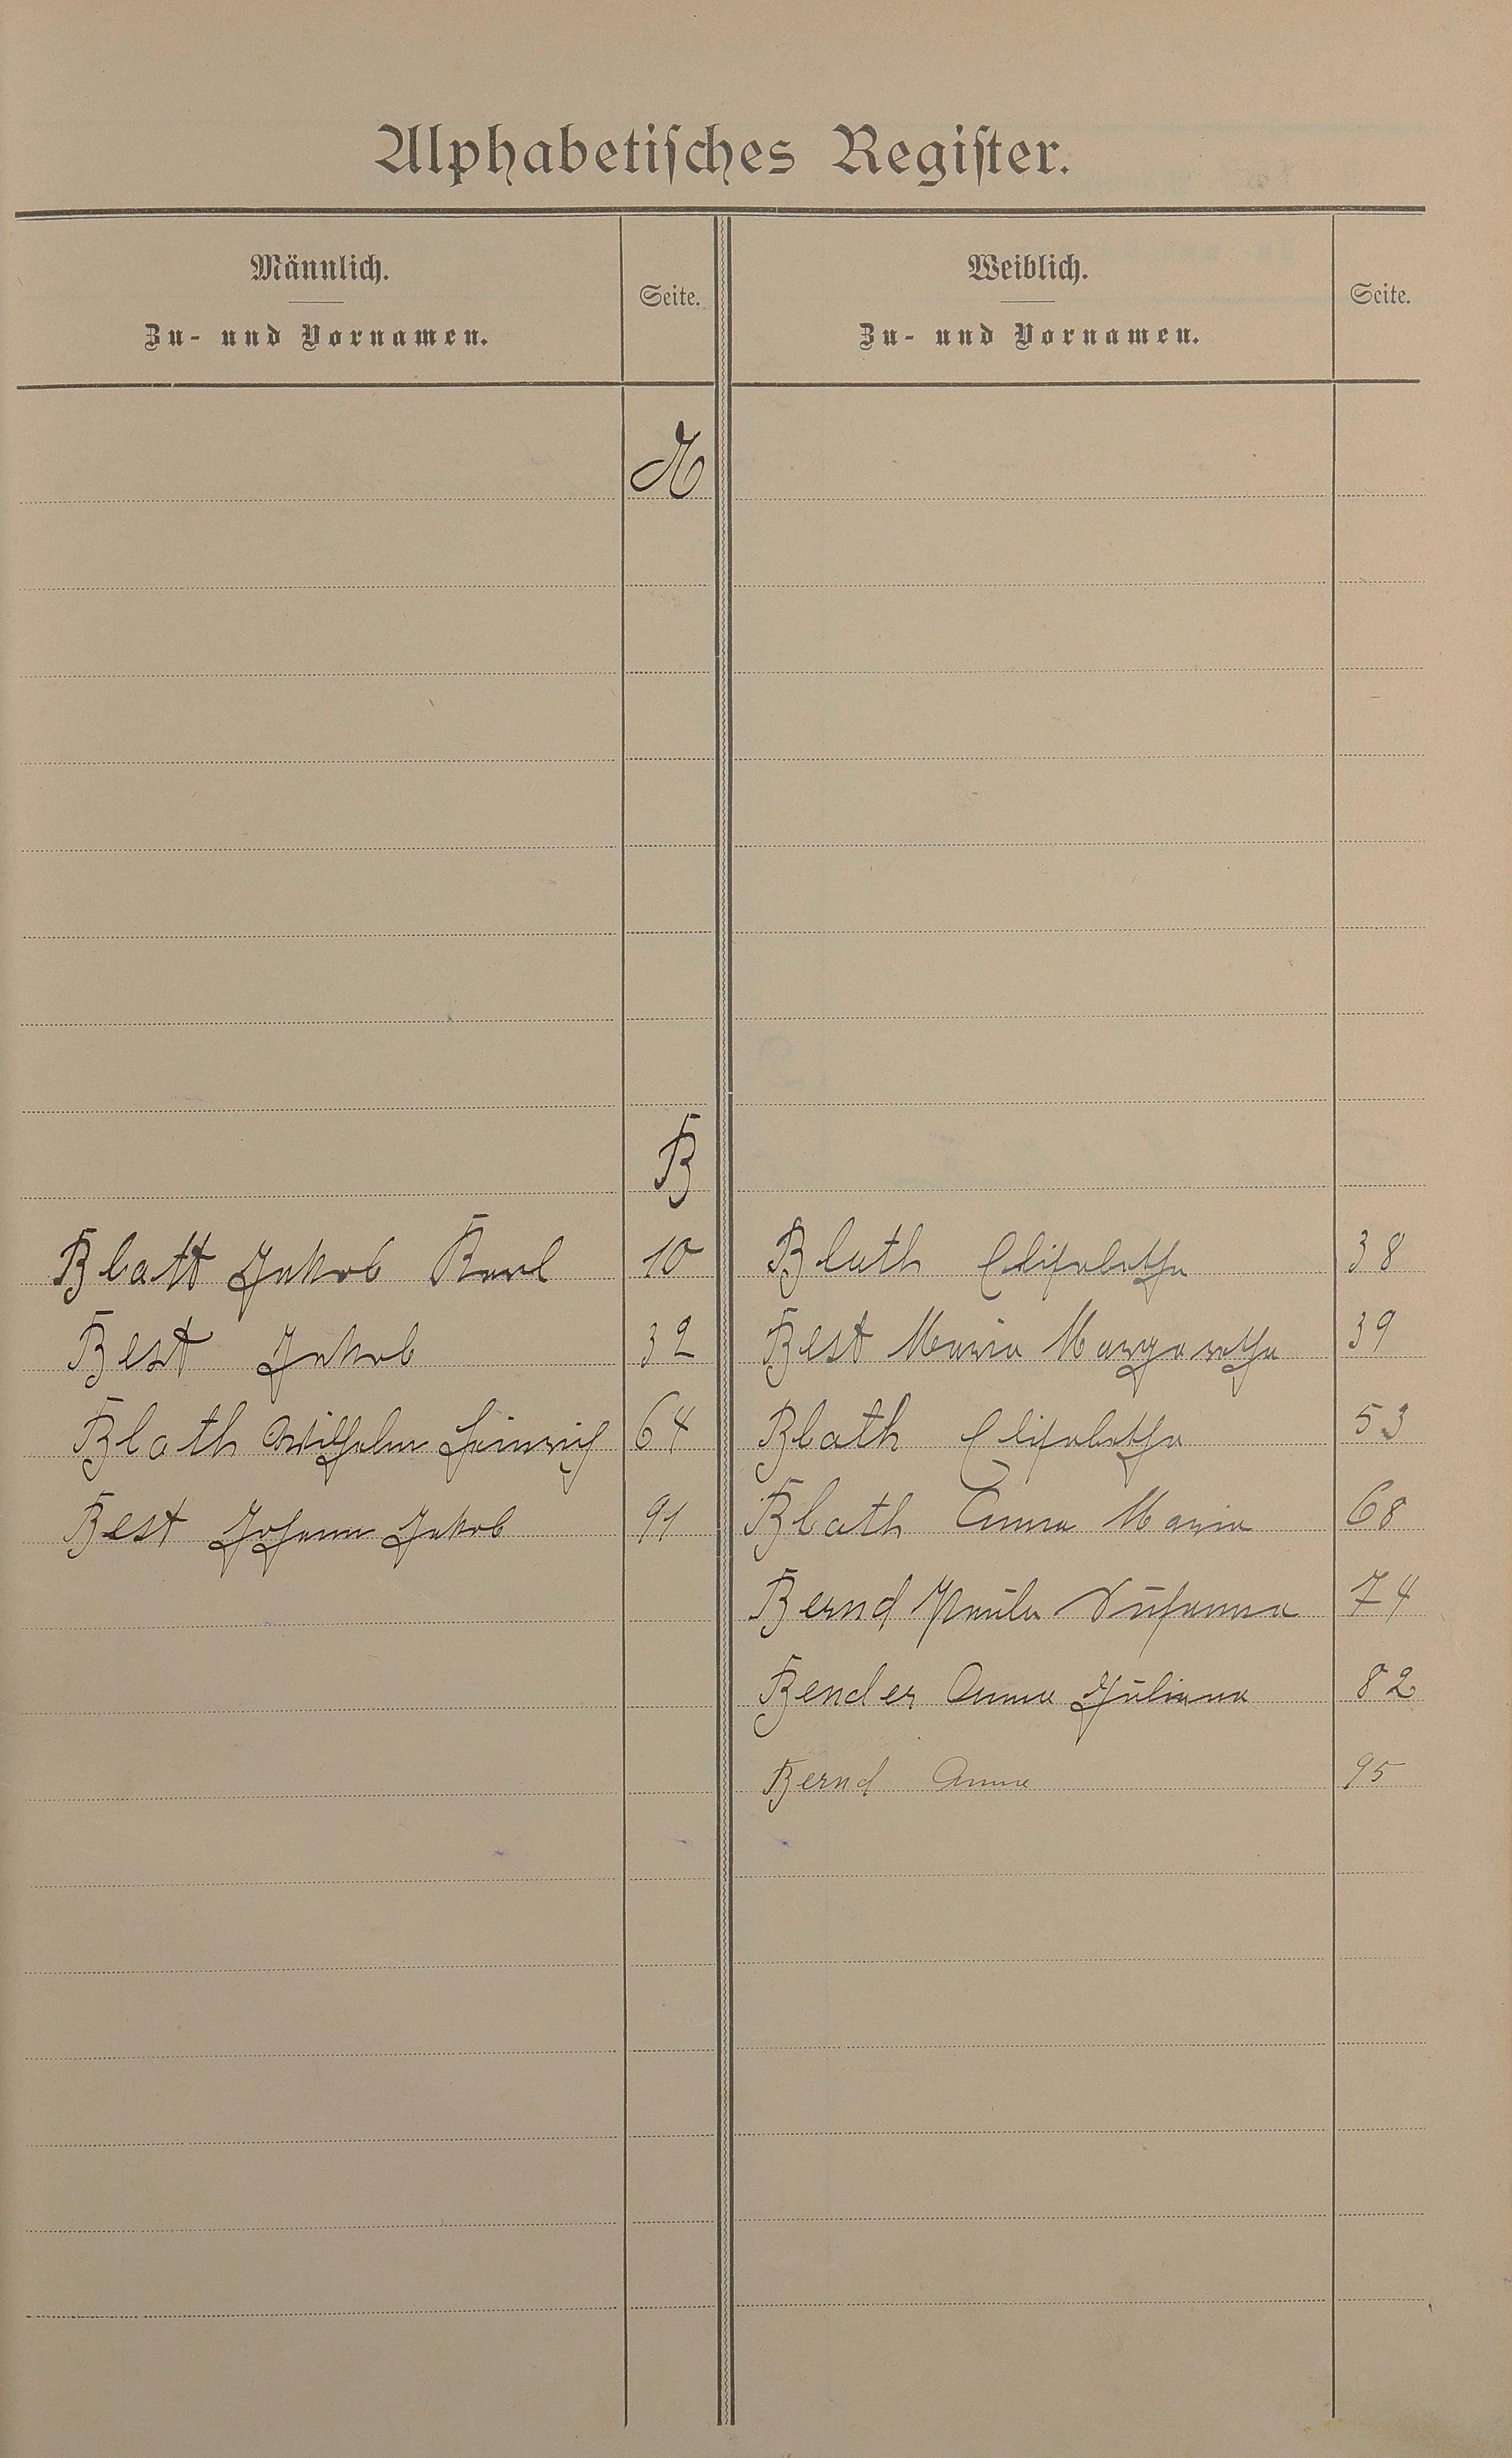 Alphabetisches Register.
Männlich. Seite. Weiblich. Seite.
Zu- und Vornamen. Zu- und Vornamen.
A
B
Blatt Jakob Karl 10 Bluth Elisabetha 38
Best Jakob 32 Best Maria Margaretha 39
Blath Wilhelm Heinrich 64 Blath Elisabetha 53
Best Johann Jakob 91 Blath Anna Maria 68
Bernd Paula Susanna 74
Bender Anna Juliana 82
Bernd Anna 95